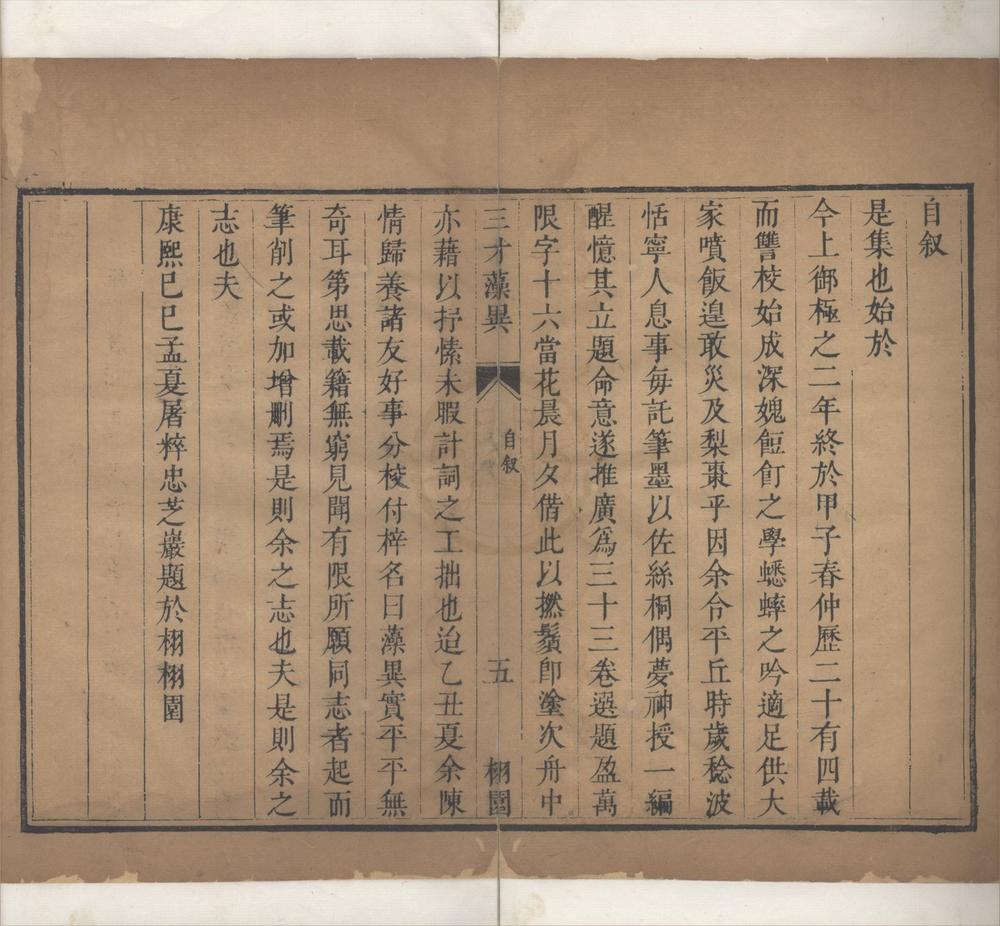 自叙
是集也始於
今上御極之二年終於甲子春仲歷二十有四載
而讐校始成深媿飣之學蟋蟀之吟適足供大
家噴飯遑敢災及梨棗乎因余令平丘時歲稔波
恬寧人息事每託筆墨以佐絲桐偶夢神授一編
醒憶其立題命意遂推廣爲三十三卷選題盈萬
限字十六當花晨月夕借此以撚鬚卽塗次舟中
三才藻異
自叙
五
栩園
亦藉以抒愫未暇計詞之工拙也迨乙丑夏余陳
情歸養諸友好事分梭付梓名曰藻異實平平無
奇耳第思載籍無窮見聞有限所願同志者起而
筆削之或加增删焉是則余之志也夫是則余之
志也夫
康熙己巳孟夏屠粹忠芝巖題於栩栩園